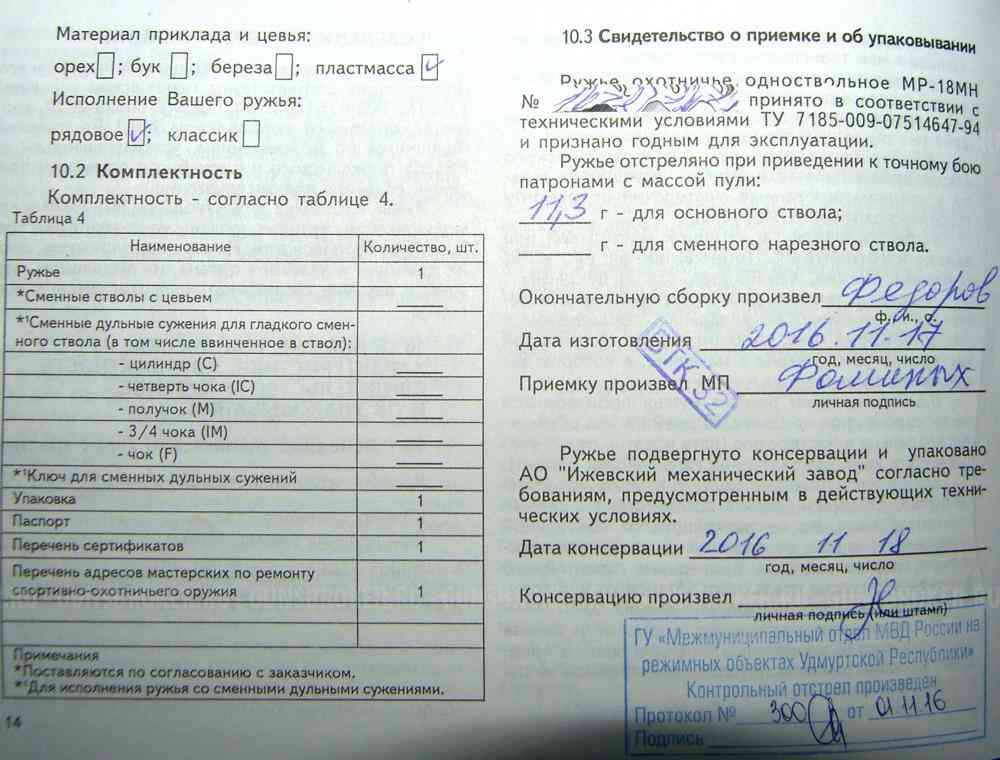 Материал приклада и цевья:
орех ; бук ; береза ; пластмасса ✓
Исполнение Вашего ружья:
рядовое ✓; классик
10.2 Комплектность
Комплектность - согласно таблице 4.
Таблица 4
Наименование Количество, шт.
Ружье 1
*Сменные стволы с цевьем
*¹Сменные дульные сужения для гладкого смен-
ного ствола (в том числе ввинченное в ствол):
- цилиндр (C)
- четверть чока (IC)
- получок (M)
- 3/4 чока (IM)
- чок (F)
*¹Ключ для сменных дульных сужений
Упаковка 1
Паспорт 1
Перечень сертификатов 1
Перечень адресов мастерских по ремонту
спортивно-охотничьего оружия 1
Примечания
*Поставляются по согласованию с заказчиком.
*¹Для исполнения ружья со сменными дульными сужениями.
14
10.3 Свидетельство о приемке и об упаковывании
Ружье охотничье одноствольное МР-18МН
№ принято в соответствии с
техническими условиями ТУ 7185-009-07514647-94
и признано годным для эксплуатации.
Ружье отстреляно при приведении к точному бою
патронами с массой пули:
11,3 г - для основного ствола;
г - для сменного нарезного ствола.
Окончательную сборку произвел Федоров
ф., и., о.
Дата изготовления 2016.11.17
год, месяц, число
БТК 32
Приемку произвел МП Фоминых
личная подпись
Ружье подвергнуто консервации и упаковано
АО "Ижевский механический завод" согласно тре-
бованиям, предусмотренным в действующих техни-
ческих условиях.
Дата консервации 2016 11 18
год, месяц, число
Консервацию произвел
личная подпись (или штамп)
ГУ «Межмуниципальный отдел МВД России на
режимных объектах Удмуртской Республики»
Контрольный отстрел произведен
Протокол № 300 от 01.11.16
Подпись